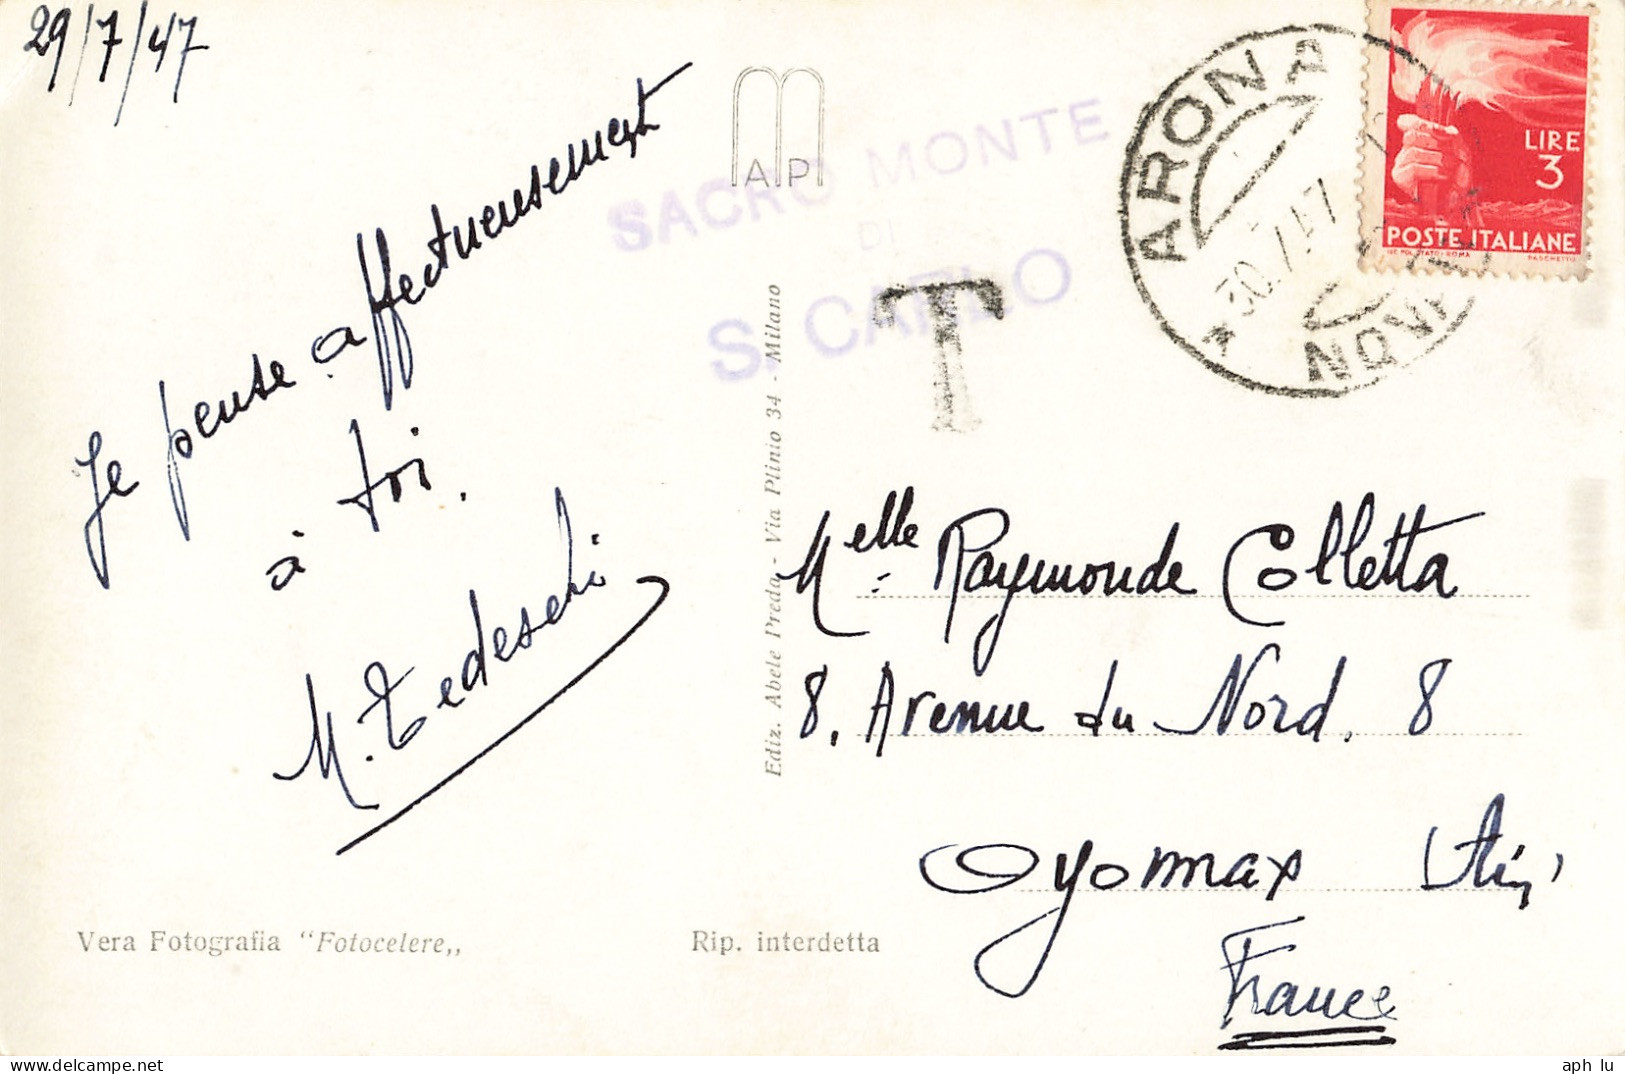 29/7/47
Je pense affectueusement
à toi.
M. Tedeschi
Vera Fotografia "Fotocelere„
AMP
SACRO MONTE
DI
S. CARLO
T
Ediz. Abele Preda - Via Plinio 34 - Milano
Rip. interdetta
ARONA
30.7.47
NOVARA
LIRE
3
POSTE ITALIANE
IST. POL. STATO - ROMA
PASCHETTO
Melle Raymonde Colletta
8, Avenue du Nord. 8
Oyonnax (Ain)
France
aph lu